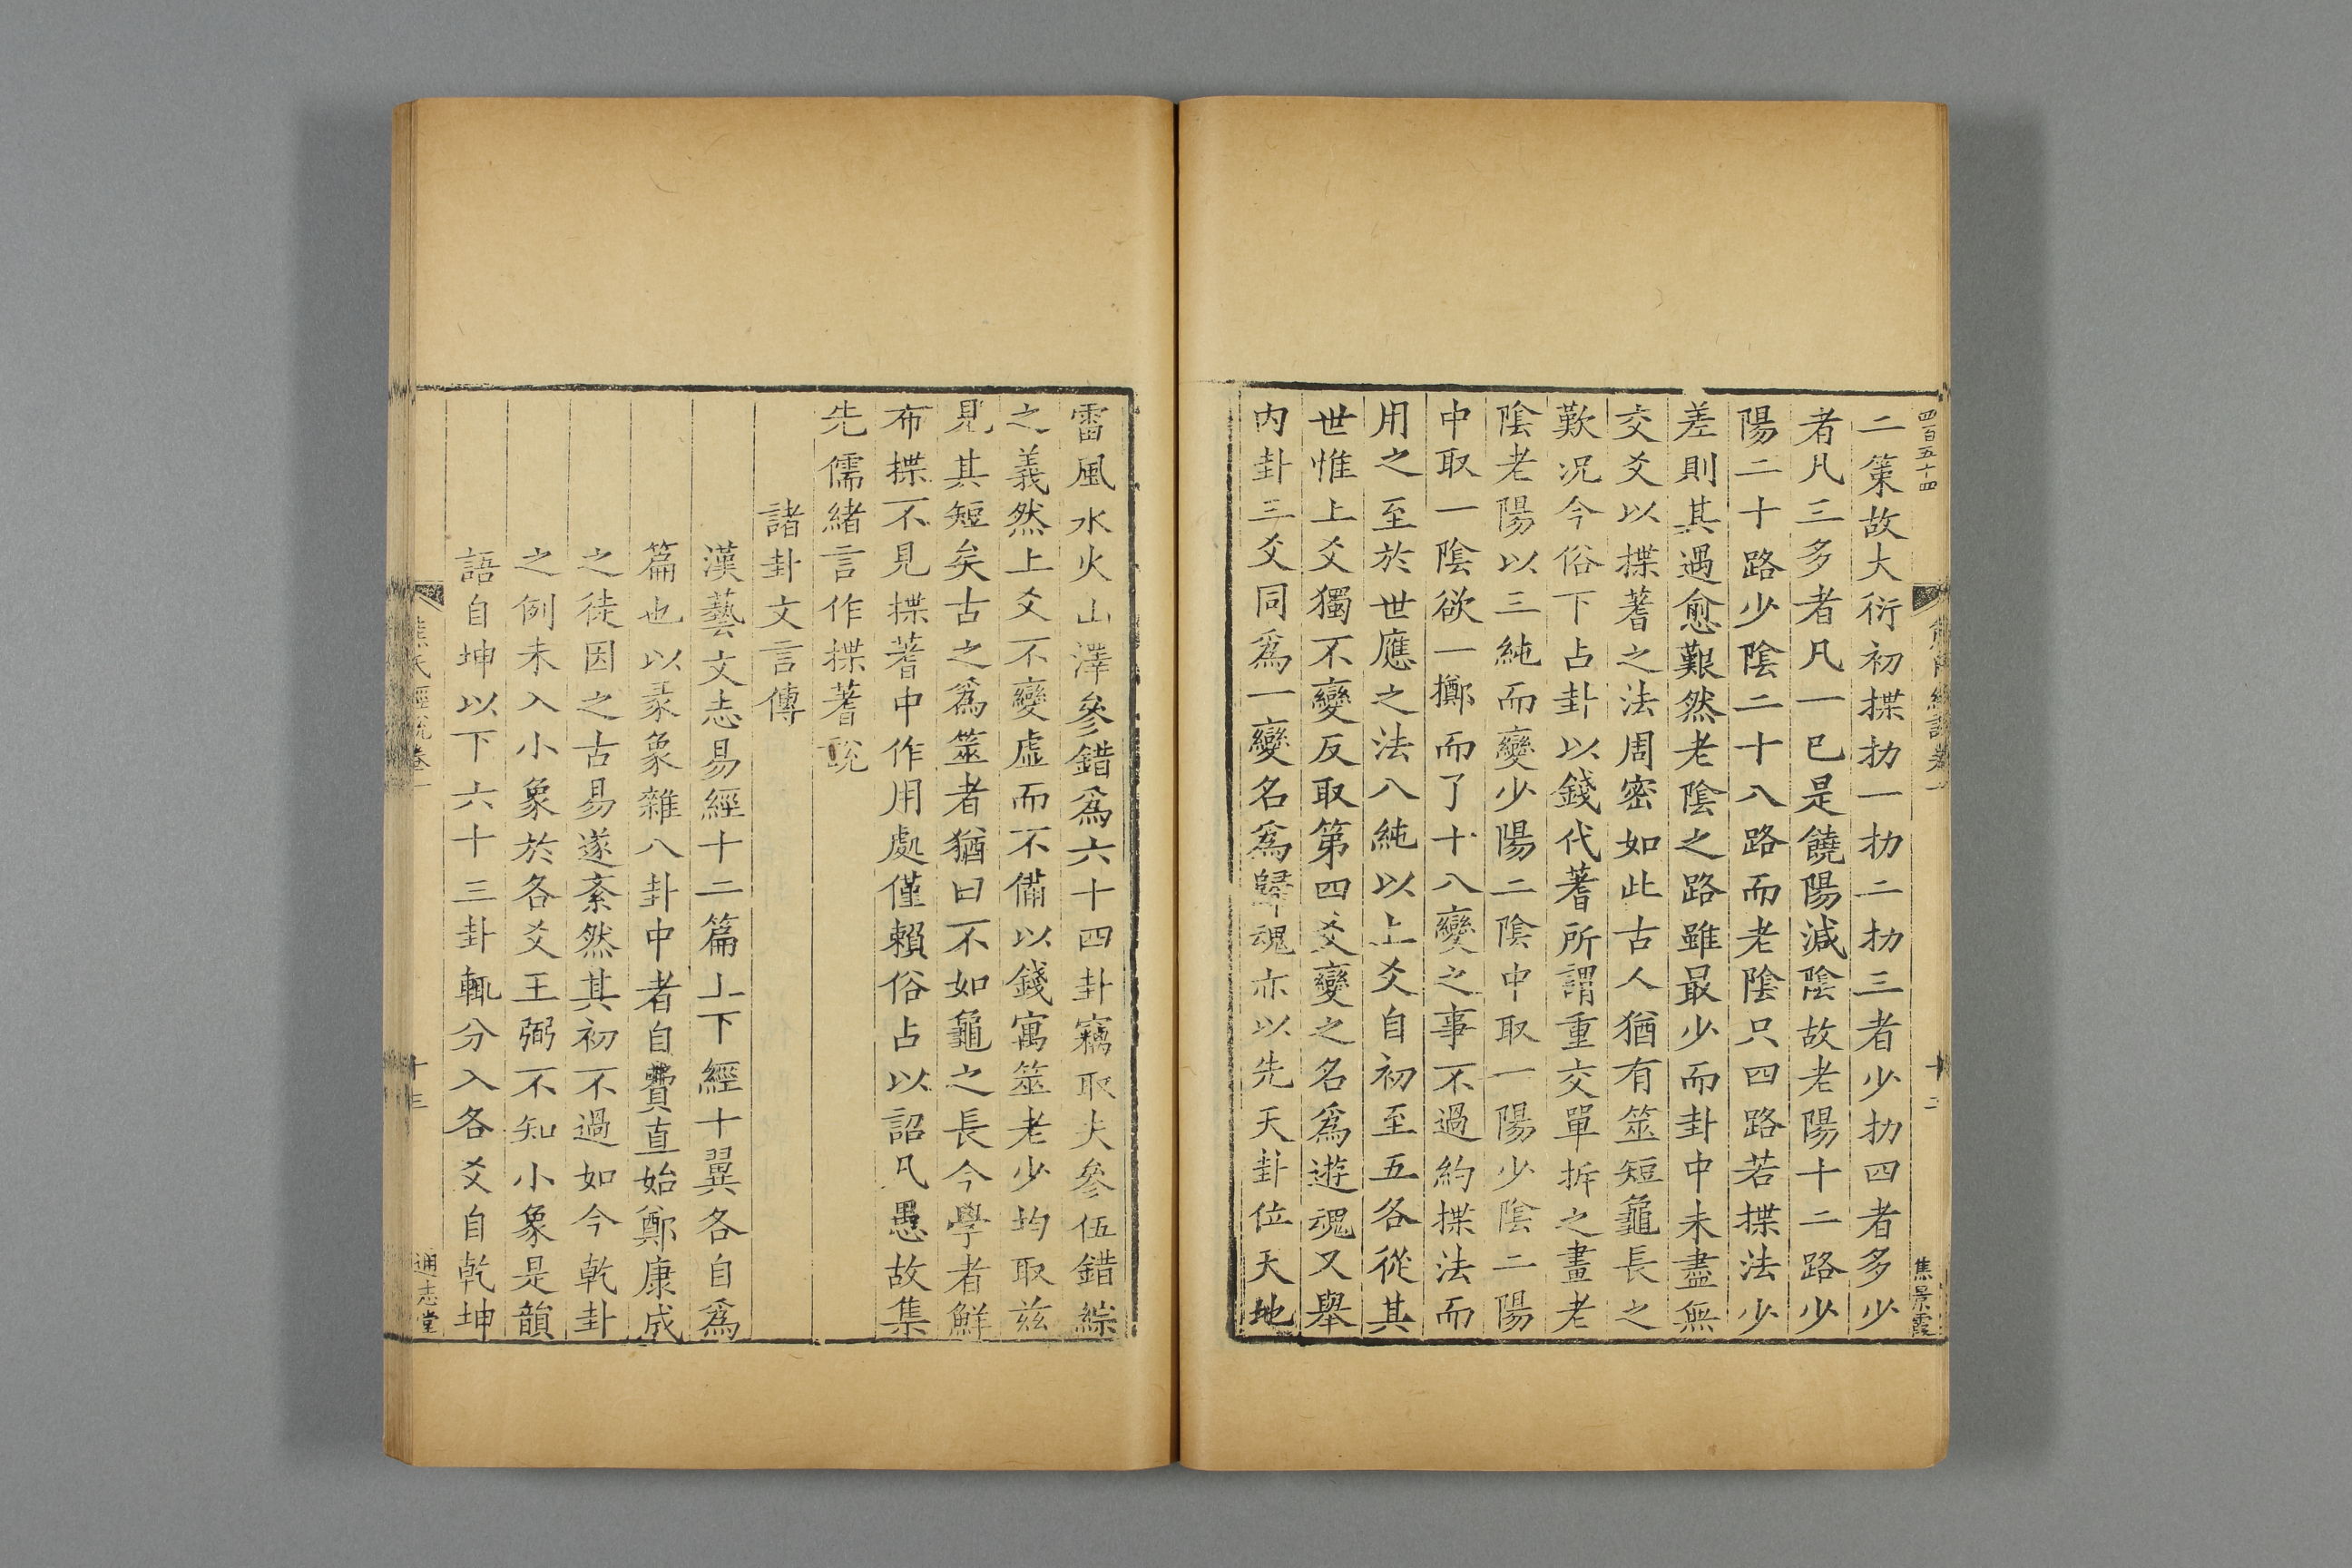 四百五十四
熊氏經說卷一
十二
焦景霞
二策故大衍初揲扐一扐二扐三者少扐四者多少
者凡三多者凡一已是饒陽減陰故老陽十二路少
陽二十路少陰二十八路而老陰只四路若揲法少
差則其遇愈艱然老陰之路雖最少而卦中未盡無
交爻以揲蓍之法周密如此古人猶有筮短龜長之
歎况今俗下占卦以錢代蓍所謂重交單拆之畫老
陰老陽以三純而變少陽二陰中取一陽少陰二陽
中取一陰欲一擲而了十八變之事不過約揲法而
用之至於世應之法八純以上爻自初至五各從其
世惟上爻獨不變反取第四爻變之名爲遊魂又舉
内卦三爻同爲一變名爲歸魂亦以先天卦位天地
雷風水火山澤參錯爲六十四卦竊取夫參伍錯綜
之義然上爻不變虛而不備以錢寓筮老少均取兹
見其短矣古之爲筮者猶曰不如龜之長今學者鮮
布揲不見揲蓍中作用處僅賴俗占以詔凡愚故集
先儒緒言作揲蓍說
諸卦文言傳
漢藝文志易經十二篇上下經十翼各自爲
篇也以彖象雜八卦中者自費直始鄭康成
之徒因之古易遂紊然其初不過如今乾卦
之例未入小象於各爻王弼不知小象是韻
語自坤以下六十三卦輒分入各爻自乾坤
熊氏經說卷一
十三
通志堂